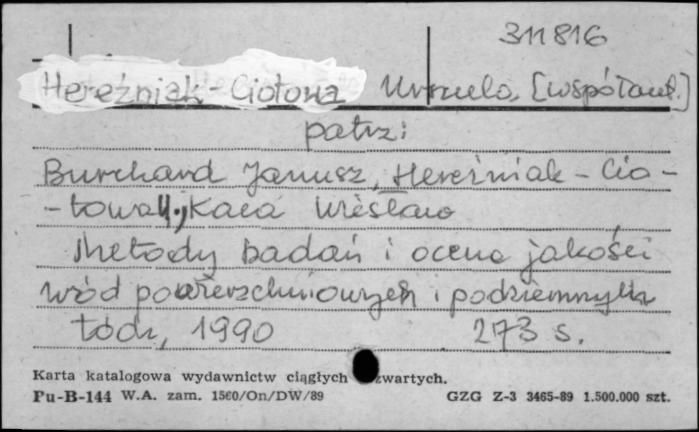 311816
Hereźniak-Ciotowa Urszula [współaut.]
patrz:
Burchard Janusz, Hereźniak-Cio-
-towa U., Kaca Wiesław
Metody badań i ocena jakości
wód powierzchniowych i podziemnych
Łódź, 1990 273 s.
Karta katalogowa wydawnictw ciągłych zwartych.
Pu-B-144 W.A. zam. 1560/On/DW/89 GZG Z-3 3465-89 1.500.000 szt.